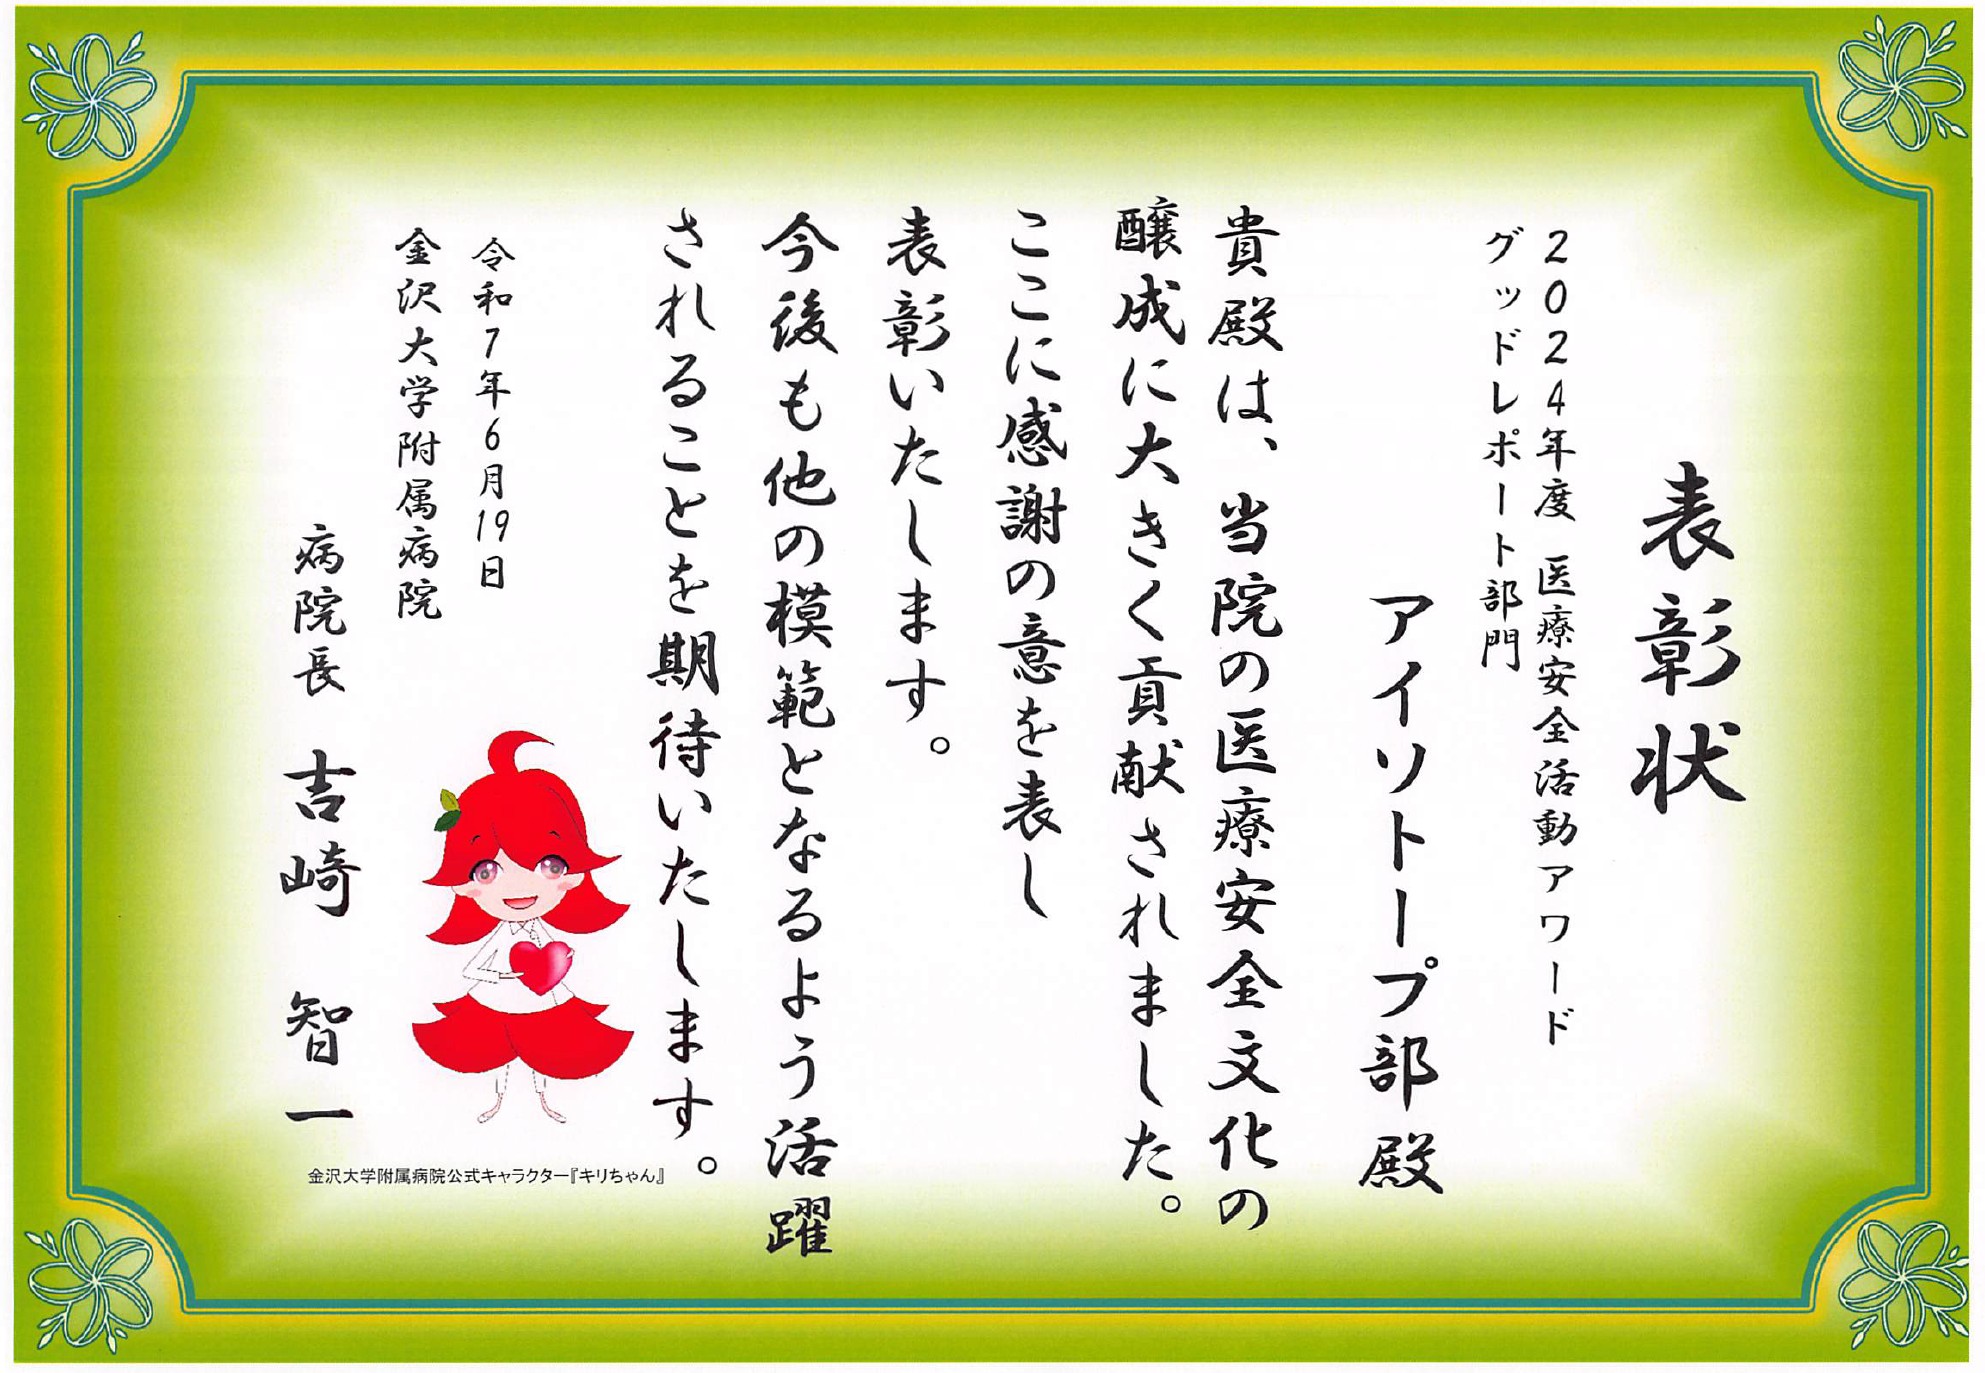 表彰状
2024年度 医療安全活動アワード
グッドレポート部門
アイソトープ部殿
貴殿は、当院の医療安全文化の
醸成に大きく貢献されました。
ここに感謝の意を表し
表彰いたします。
今後も他の模範となるよう活躍
されることを期待いたします。
令和7年6月19日
金沢大学附属病院
病院長 吉崎 智一
金沢大学附属病院公式キャラクター『キリちゃん』